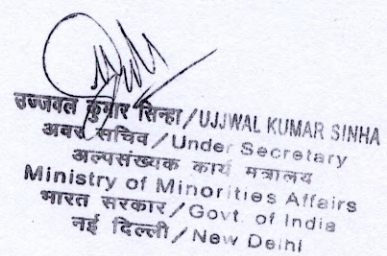 उज्जवल कुमार सिन्हा/UJJWAL KUMAR SINHA
अवर सचिव/Under Secretary
अल्पसंख्यक कार्य मंत्रालय
Ministry of Minorities Affairs
भारत सरकार/Govt. of India
नई दिल्ली/New Delhi